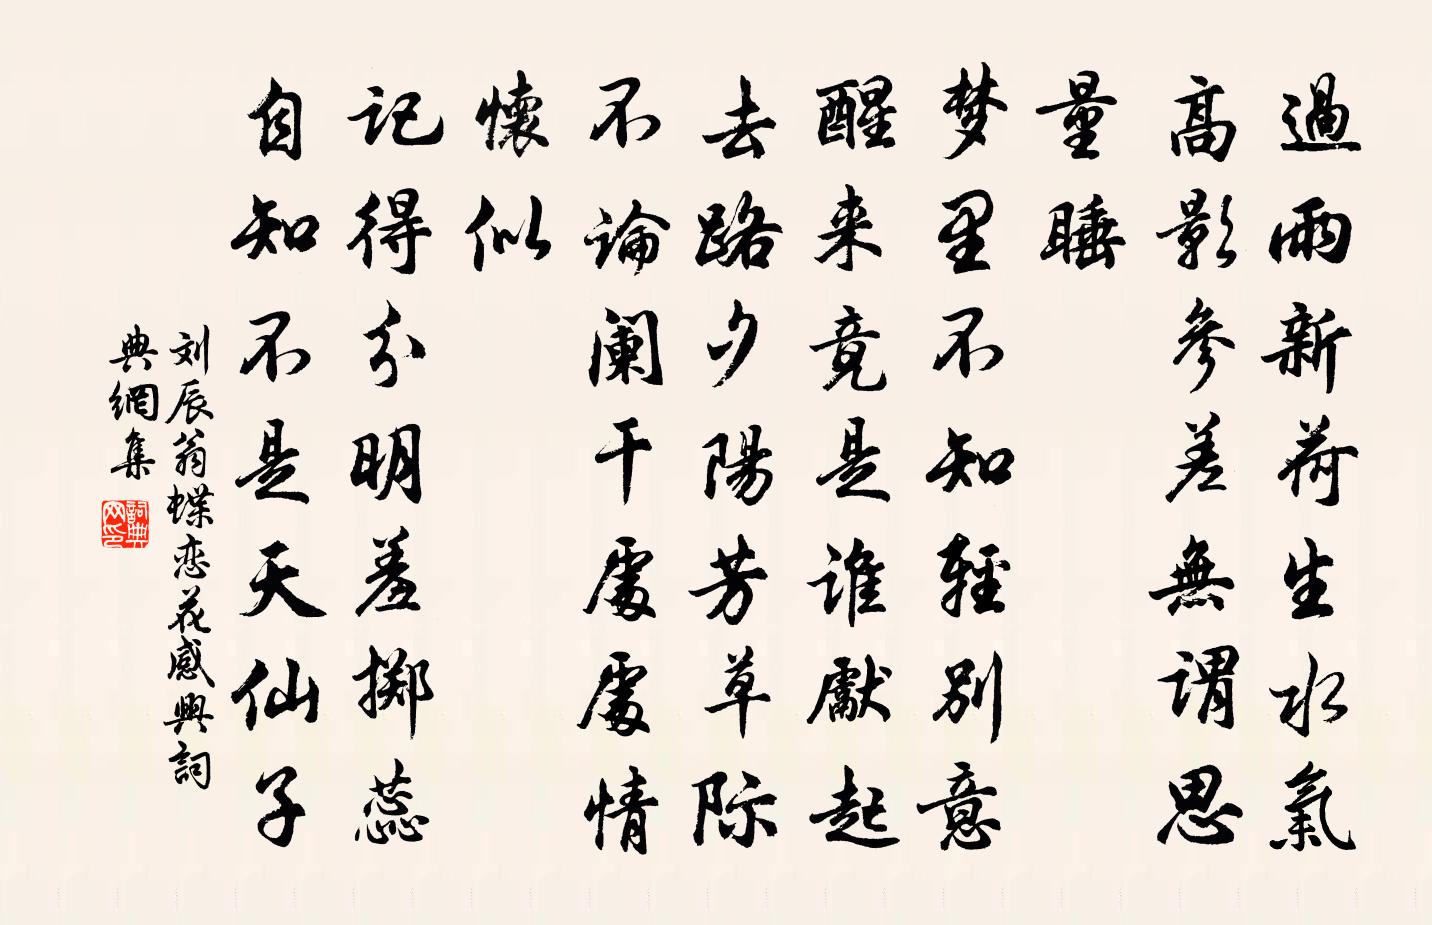 過雨新荷生水氣
高影參差無謂思
量睡
梦里不知輕別意
醒来竟是谁獻起
去路夕陽芳草际
不論阑干處處情
懷似
記得分明羞掷蕊
自知不是天仙子
刘辰翁蝶恋花感興詞
典網集
詞典
网印